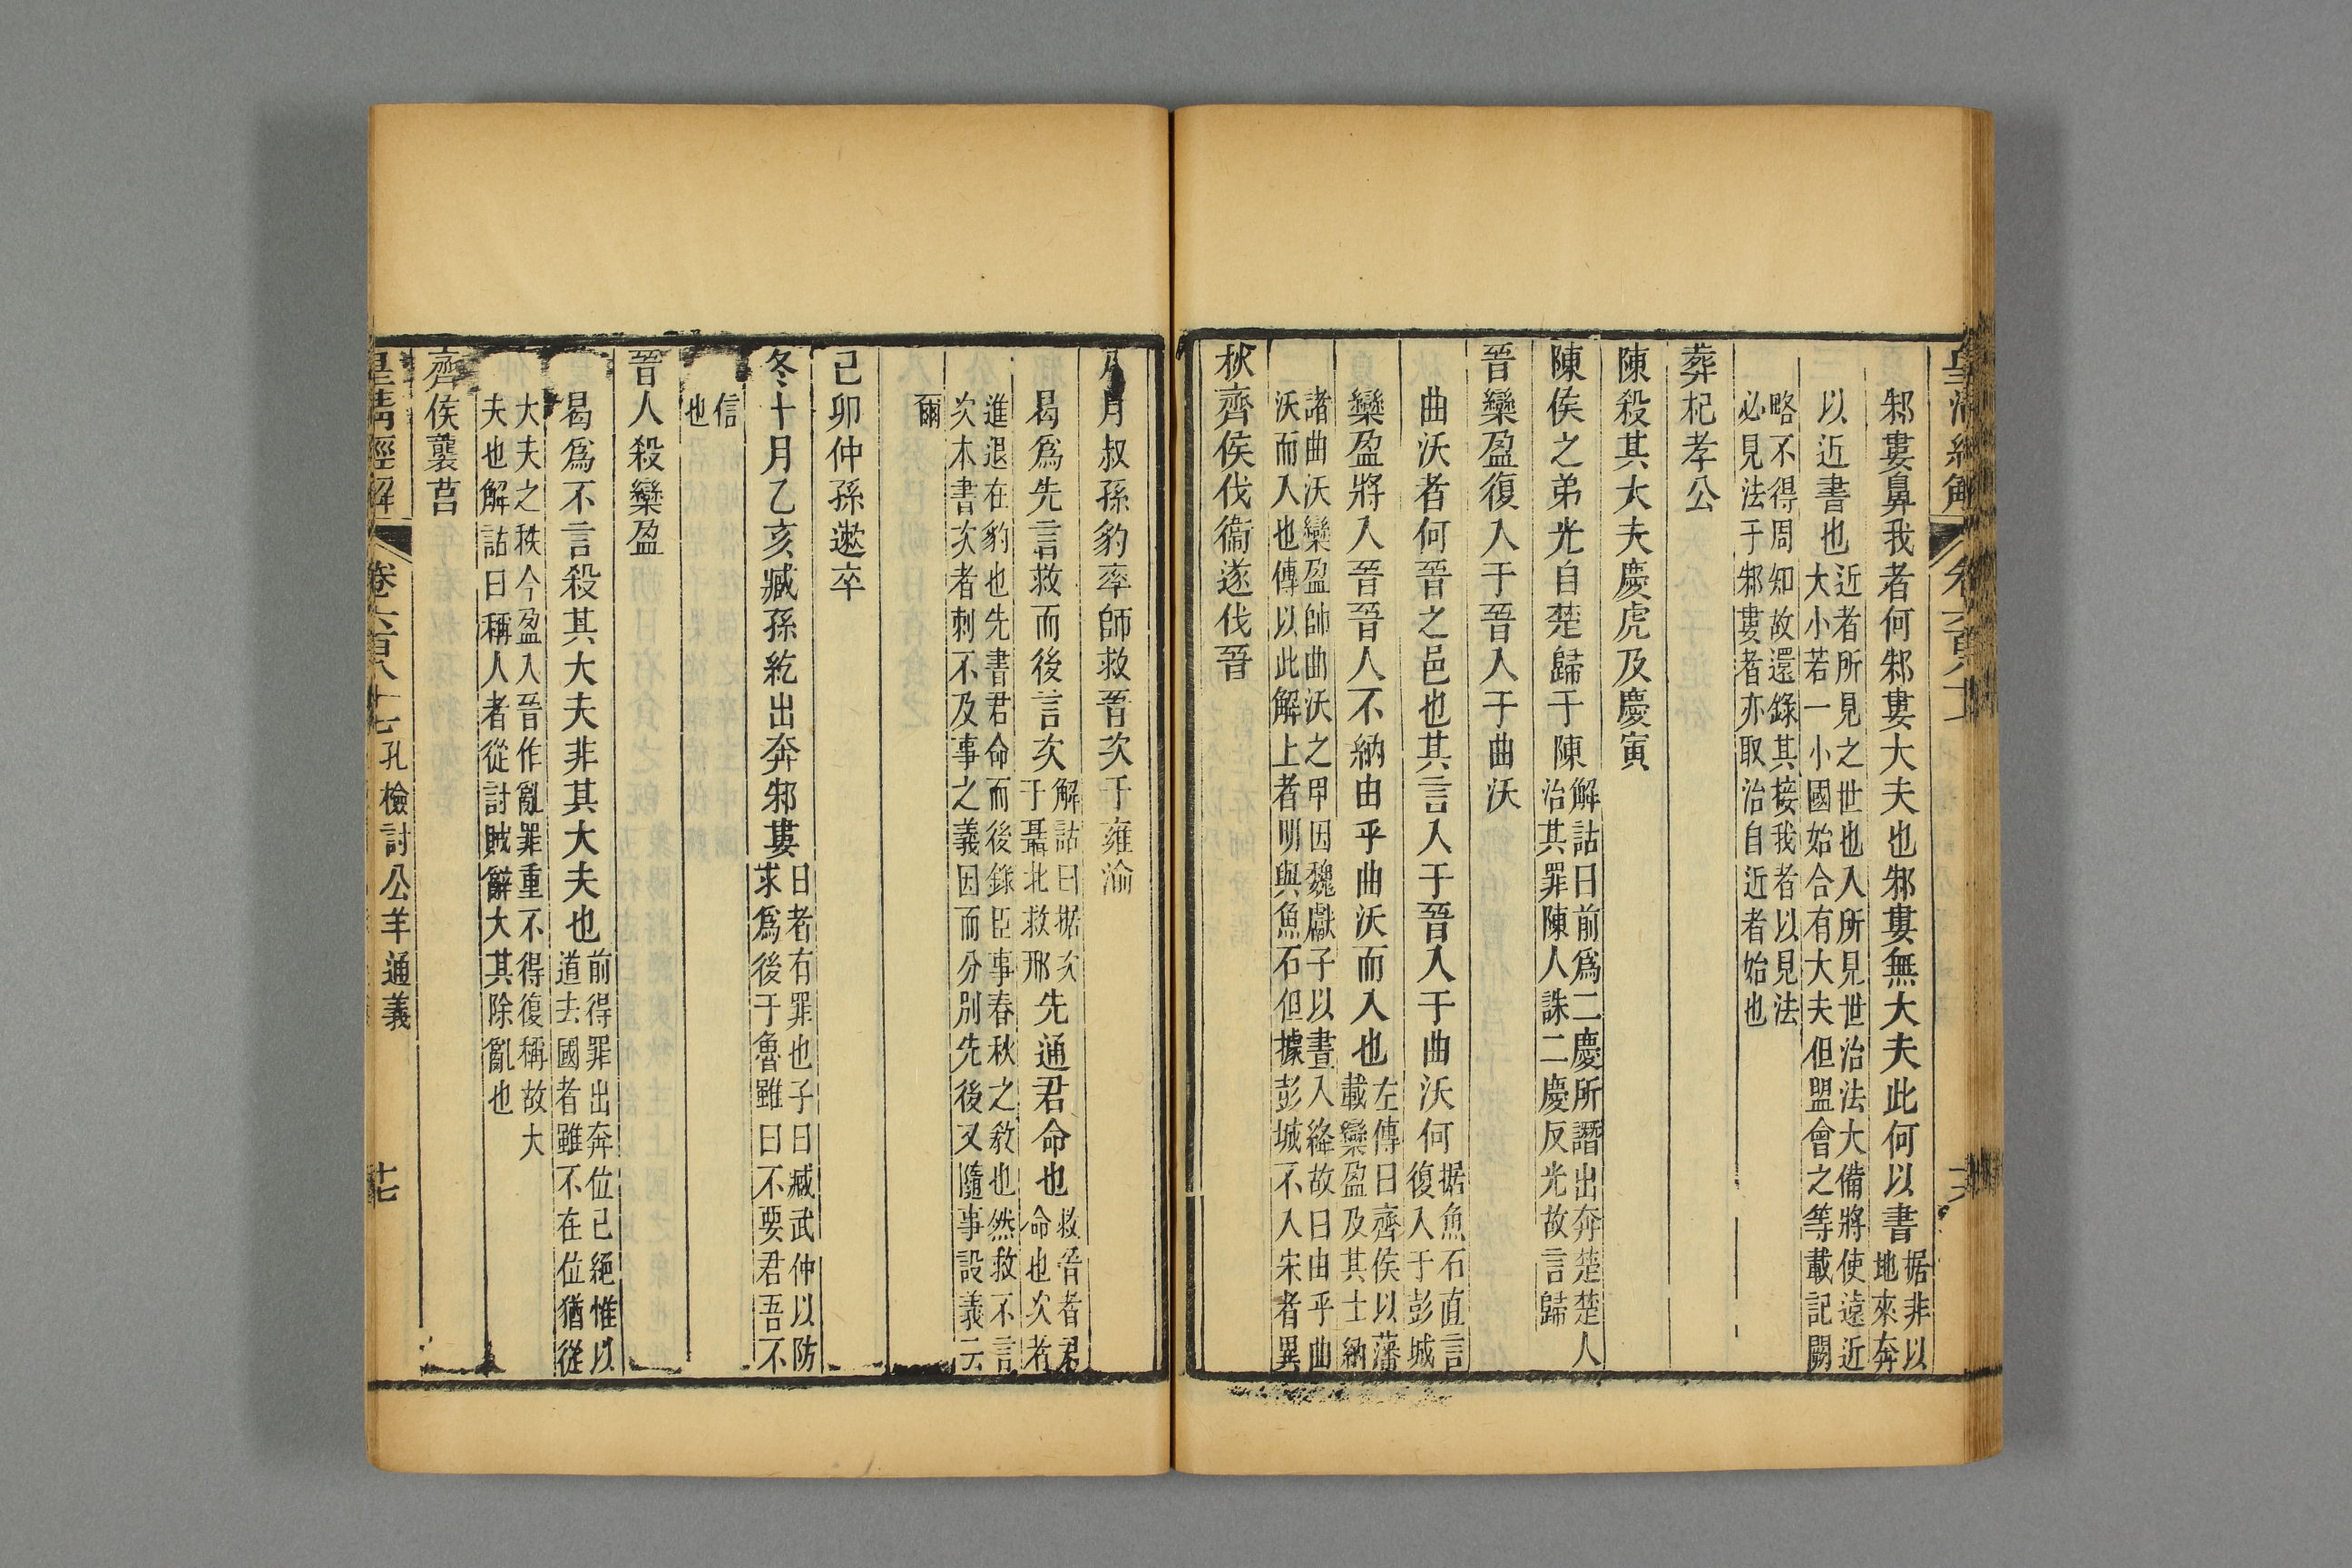 皇清經解 卷六百八十七 十六
邾婁鼻我者何邾婁大夫也邾婁無大夫此何以書据非以地來奔
以近書也近者所見之世也入所見世治法大備將使遠近大小若一小國始合有大夫但盟會之等載記闕
略不得周知故還錄其接我者以見法必見法于邾婁者亦取治自近者始也
葬杞孝公
陳殺其大夫慶虎及慶寅
陳侯之弟光自楚歸于陳解詁曰前爲二慶所譖出奔楚楚人治其罪陳人誅二慶反光故言歸
晉欒盈復入于晉入于曲沃
曲沃者何晉之邑也其言入于晉入于曲沃何据魚石直言復入于彭城
欒盈將入晉晉人不納由乎曲沃而入也左傳曰齊侯以藩載欒盈及其士納
諸曲沃欒盈帥曲沃之甲因魏獻子以晝入絳故曰由乎曲沃而入也傳以此解上者明與魚石但據彭城不入宋者異
秋齊侯伐衞遂伐晉
八月叔孫豹率師救晉次于雍渝
曷爲先言救而後言次解詁曰据次于聶北救邢先通君命也救晉者君命也次者
進退在豹也先書君命而後錄臣事春秋之敎也然救不言次本書次者刺不及事之義因而分別先後又隨事設義云
爾
己卯仲孫遬卒
冬十月乙亥臧孫紇出奔邾婁日者有罪也子曰臧武仲以防求爲後于魯雖曰不要君吾不
信也
晉人殺欒盈
曷爲不言殺其大夫非其大夫也前得罪出奔位已絕惟以道去國者雖不在位猶從
大夫之秩今盈入晉作亂罪重不得復稱故大夫也解詁曰稱人者從討賊辭大其除亂也
齊侯襲莒
皇清經解 卷六百八十七 孔檢討公羊通義 十七